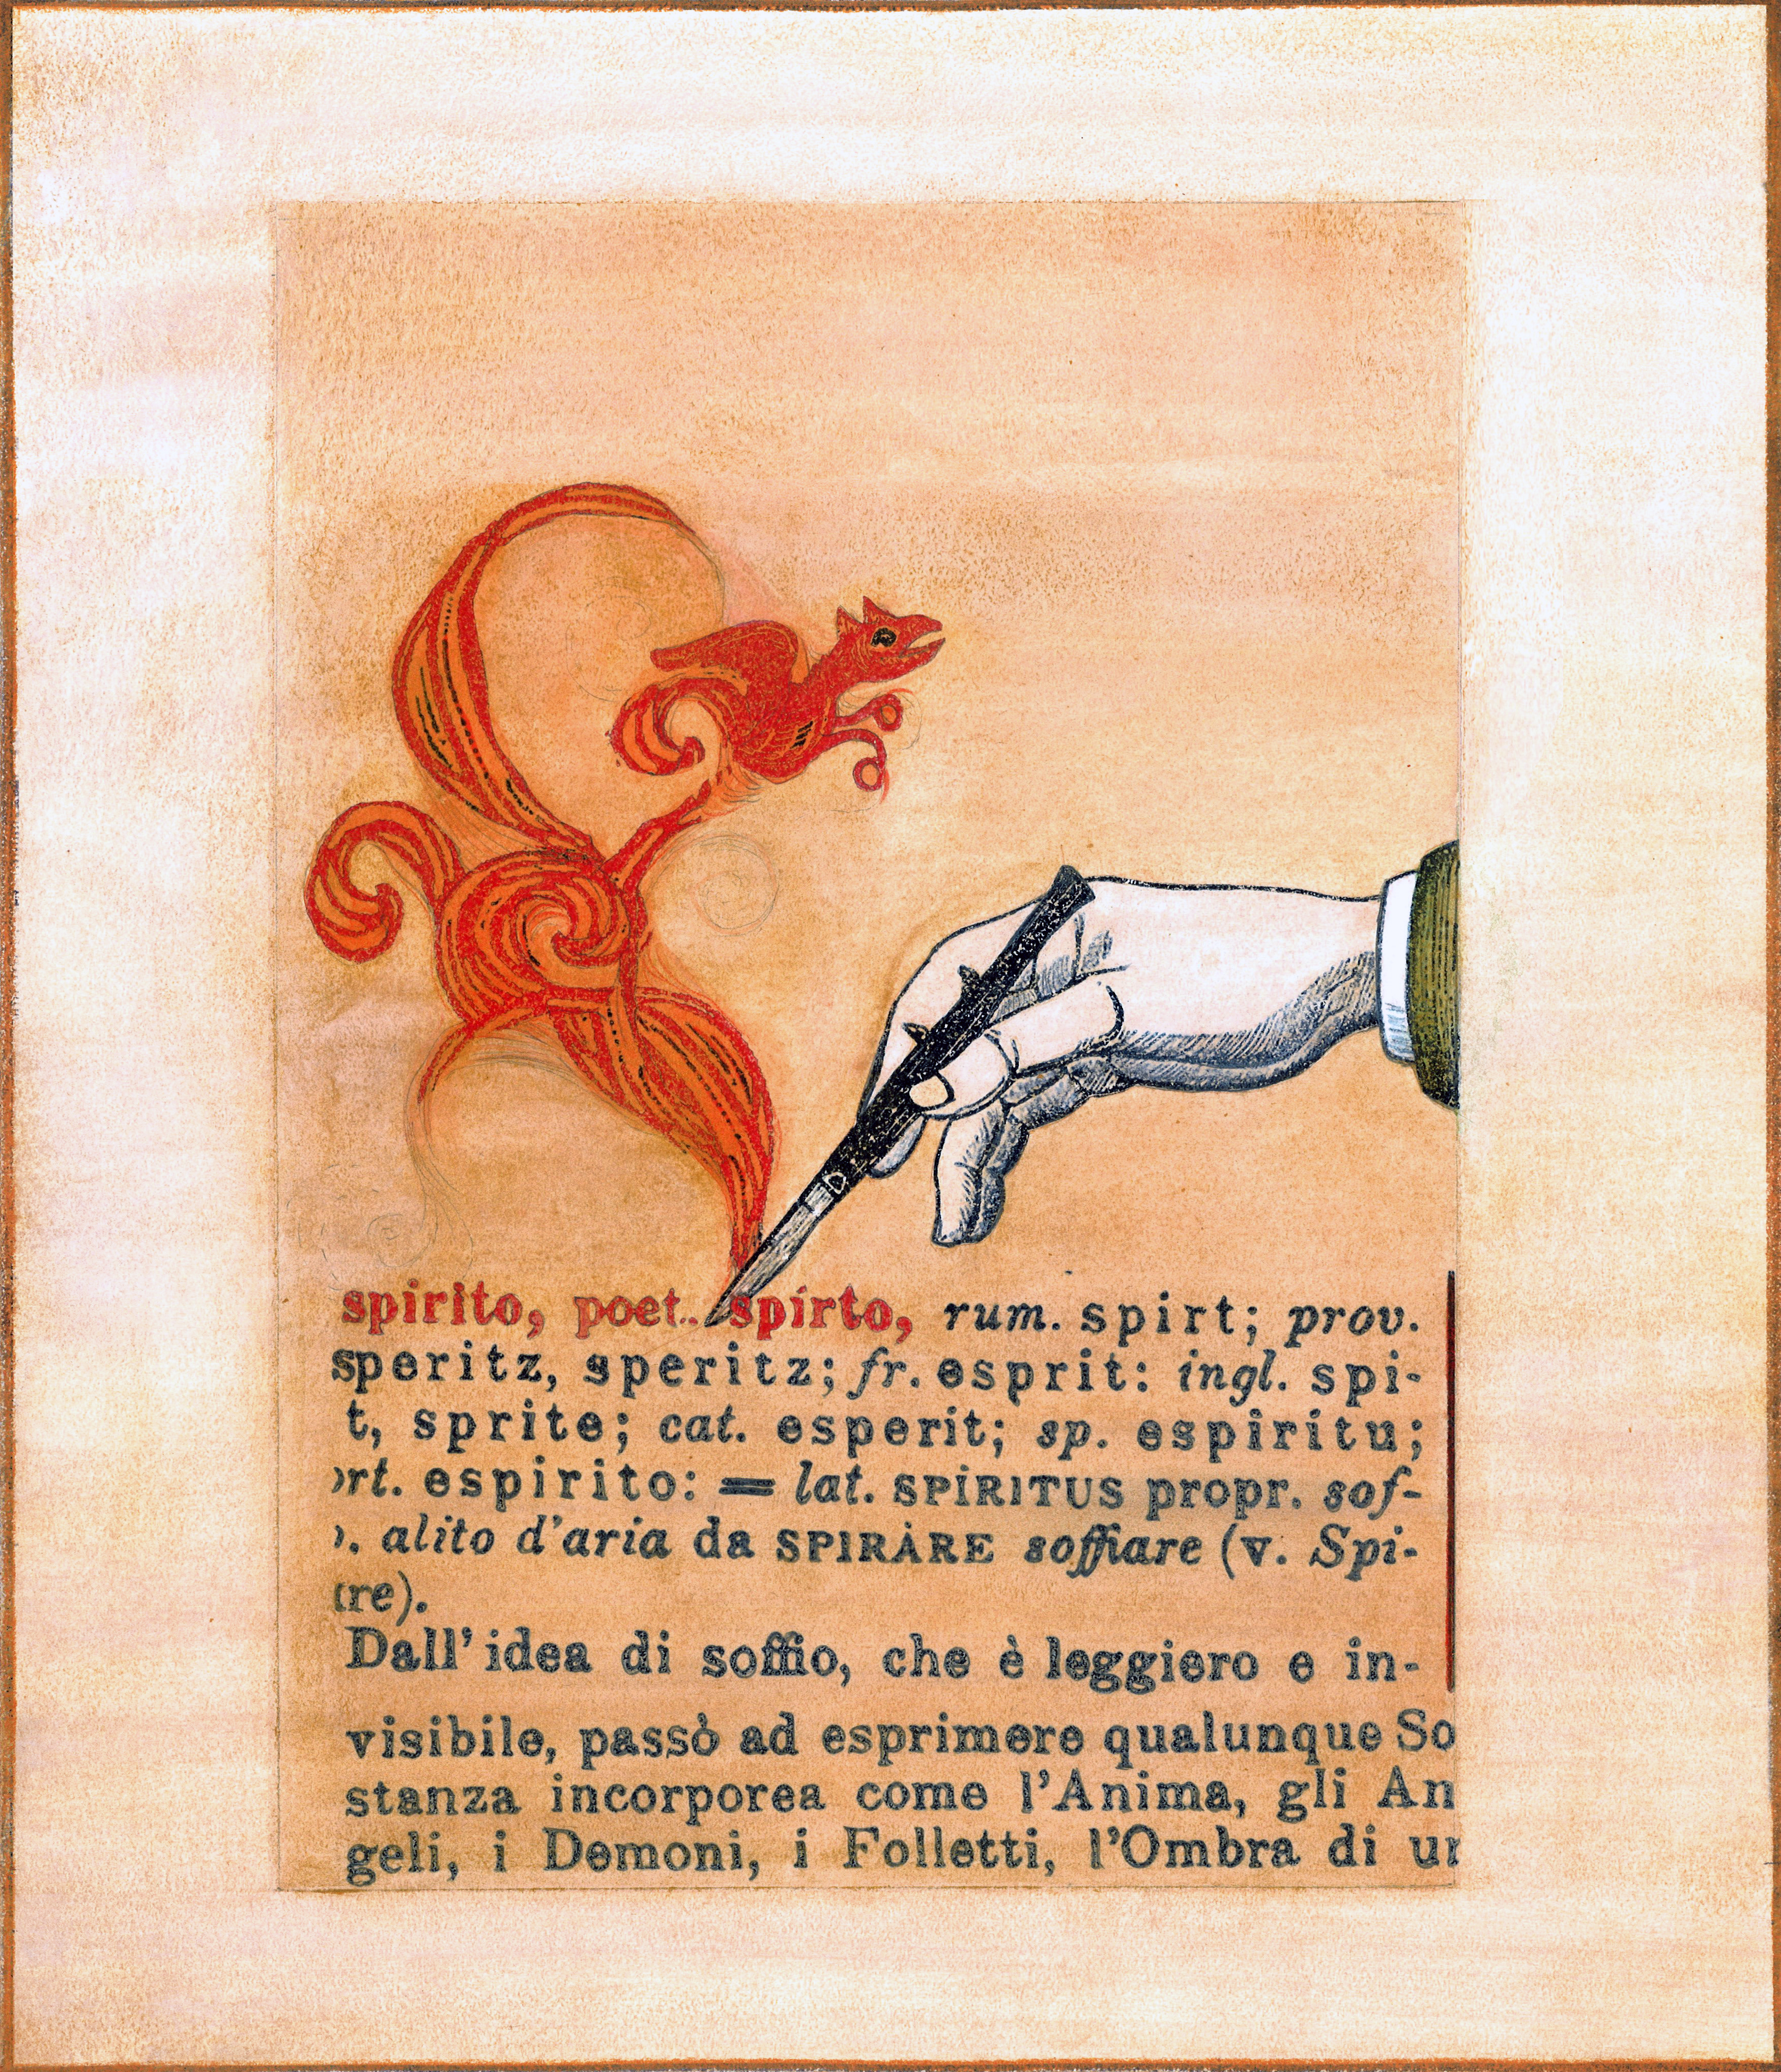 spirito, poet.. spirto, rum. spirt; prov.
speritz, speritz; fr. esprit: ingl. spi-
t, sprite; cat. esperit; sp. espiritu;
ort. espirito: = lat. SPÍRITUS propr. sof-
). alito d'aria da SPIRÀRE soffiare (v. Spi-
re).
Dall' idea di soffio, che è leggiero e in-
visibile, passò ad esprimere qualunque So
stanza incorporea come l'Anima, gli An
geli, i Demoni, i Folletti, l'Ombra di un